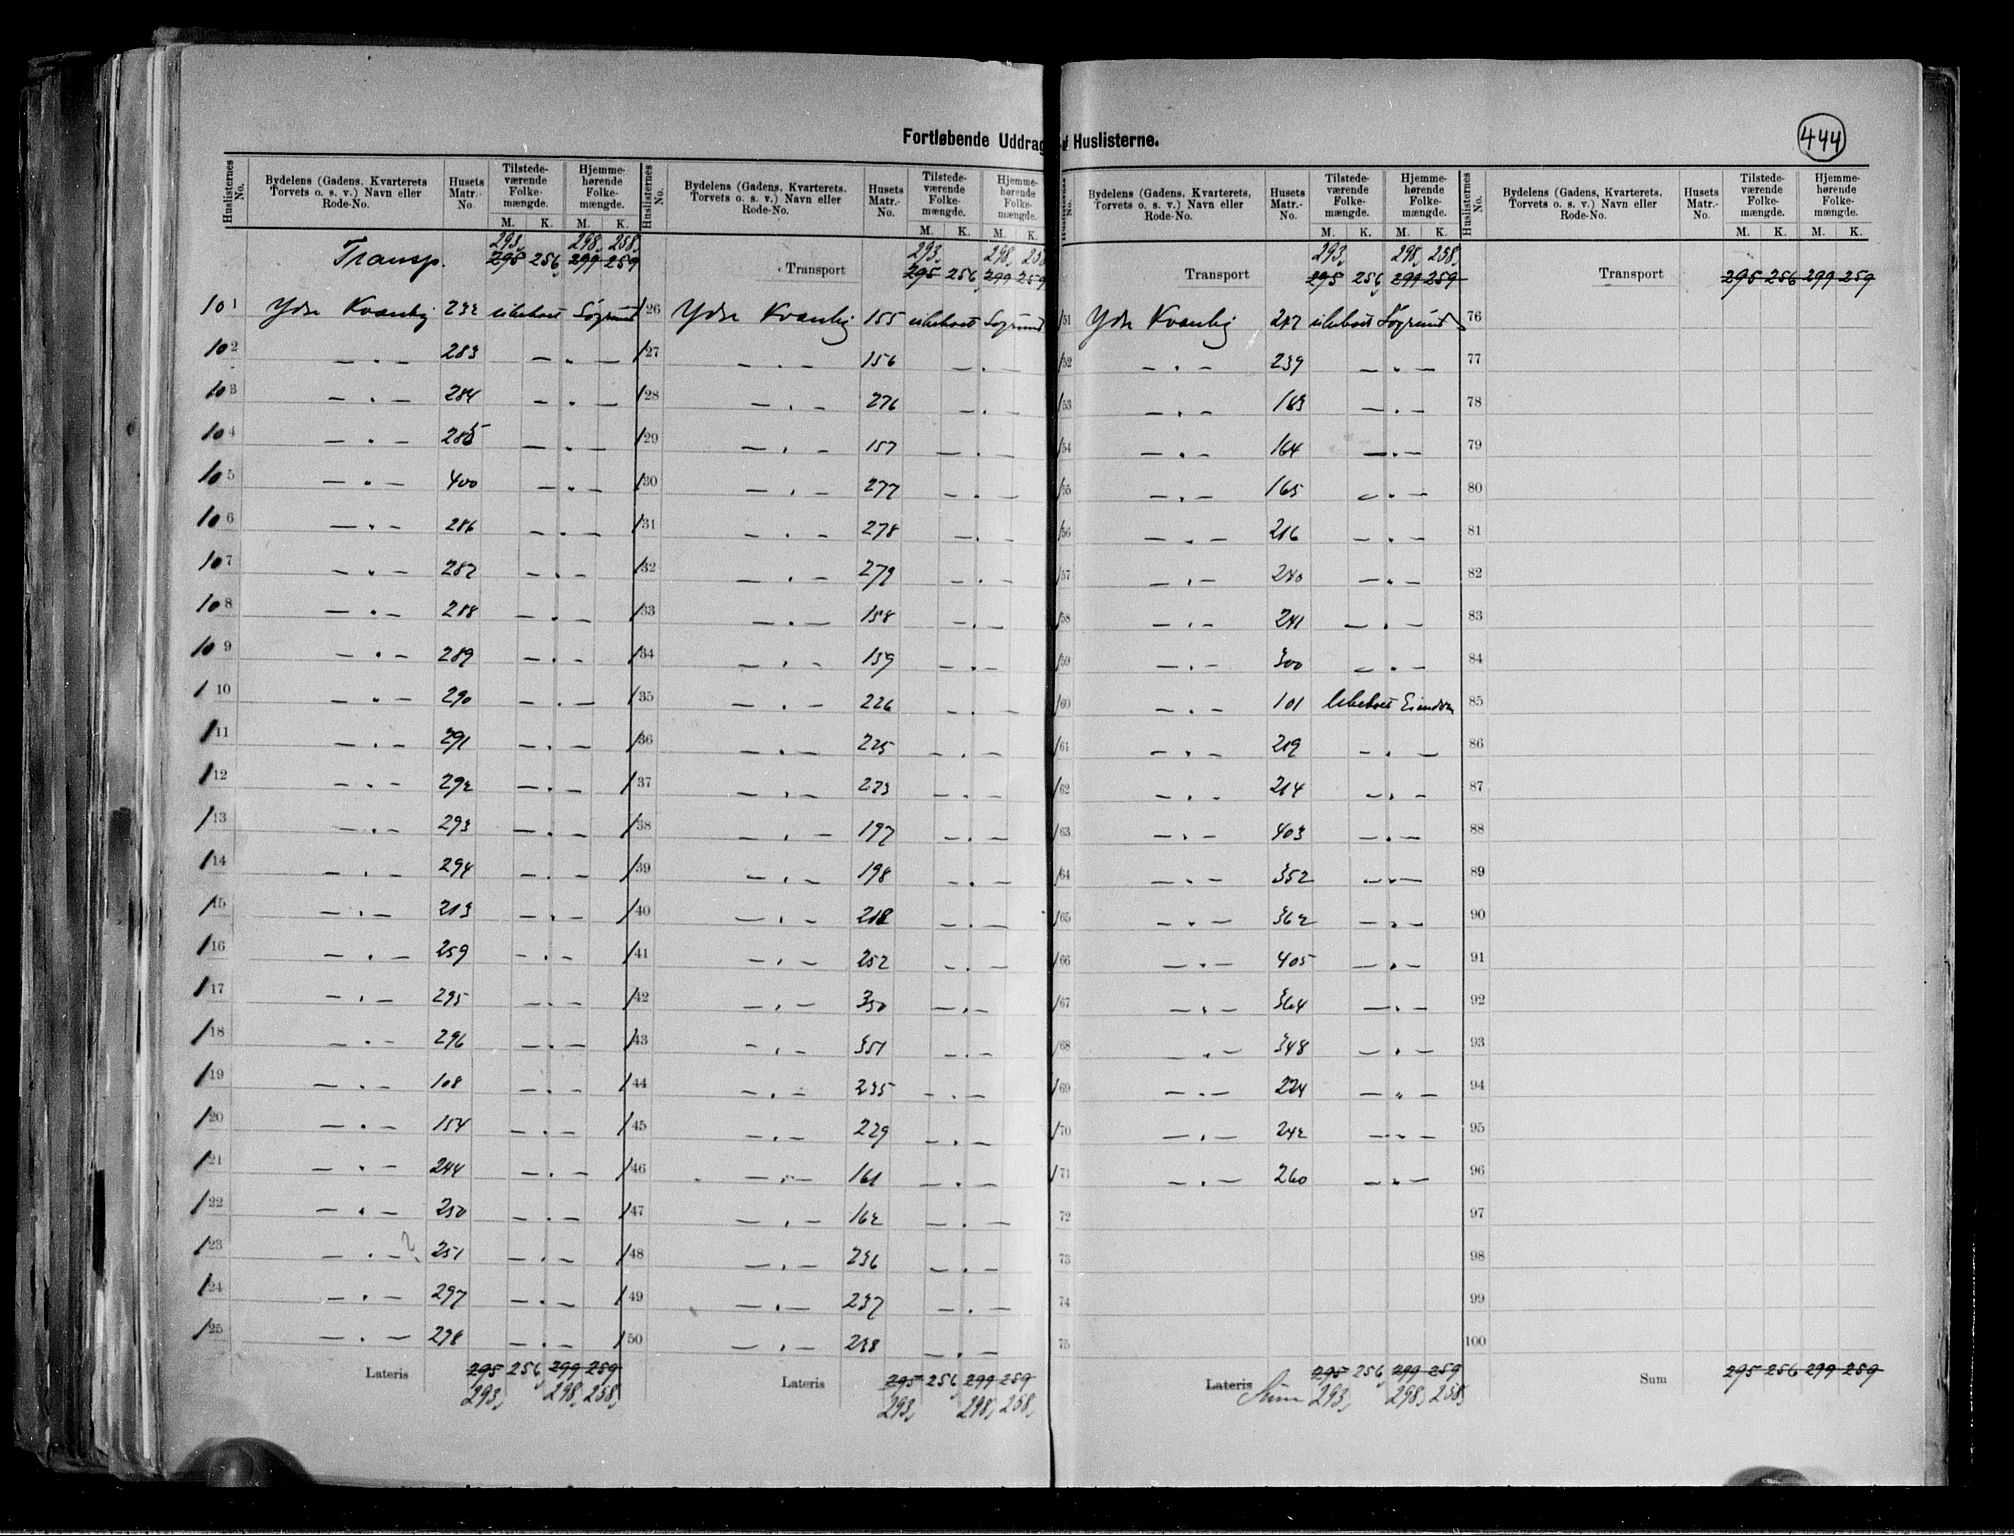 Fortløbende Uddrag af Huslisterne.
444
Huslisternes No. Bydelens (Gadens, Kvarterets Torvets o. s. v.) Navn eller Rode-No. Husets Matr.-No. Tilstede-værende Folke-mængde. M. K. Hjemme-hørende Folke-mængde. M. K.
Transp. 293, 295 256, 298, 258, 299 259
101 Ydre Kvarnby 232 ubeboet Søgrund
102 — . — 283 — . —
103 — . — 284 — . —
104 — . — 285 — . —
105 — . — 400 — . —
106 — . — 286 — . —
107 — . — 287 — . —
108 — . — 288 — . —
109 — . — 289 — . —
110 — . — 290 — . —
111 — . — 291 — . —
112 — . — 292 — . —
113 — . — 293 — . —
114 — . — 294 — . —
115 — . — 213 — . —
116 — . — 259 — . —
117 — . — 295 — . —
118 — . — 296 — . —
119 — . — 108 — . —
120 — . — 154 — . —
121 — . — 244 — . —
122 — . — 250 — . —
123 — . — 251 — . —
124 — . — 297 — . —
125 — . — 298 — . —
Lateris 295 256, 299 259
293, 298, 258,
Huslisternes No. Bydelens (Gadens, Kvarterets. Torvets o. s. v.) Navn eller Rode-No. Husets Matr.-No. Tilstede-værende Folke-mængde. M. K. Hjemme-hørende Folke-mængde. M. K.
Transport 293, 295 256, 298, 258 299 259
126 Ydre Kvarnby 155 ubeboet Søgrund
127 — . — 156 — . —
128 — . — 276 — . —
129 — . — 157 — . —
130 — . — 277 — . —
131 — . — 278 — . —
132 — . — 279 — . —
133 — . — 158 — . —
134 — . — 159 — . —
135 — . — 226 — . —
136 — . — 225 — . —
137 — . — 223 — . —
138 — . — 197 — . —
139 — . — 198 — . —
140 — . — 218 — . —
141 — . — 252 — . —
142 — . — 350 — . —
143 — . — 351 — . —
144 — . — 235 — . —
145 — . — 229 — . —
146 — . — 161 — . —
147 — . — 162 — . —
148 — . — 236 — . —
149 — . — 237 — . —
150 — . — 238 — . —
Lateris 295 256, 299 259
293, 298, 258,
No. Bydelens (Gadens, Kvarterets, Torvets o. s. v.) Navn eller Rode-No. Husets Matr.-No. Tilstede-værende Folke-mængde. M. K. Hjemme-hørende Folke-mængde. M. K.
Transport 293, 295 256, 298, 258, 299 259
151 Ydre Kvarnby 217 ubeboet Søgrund
152 — . — 239 — . —
153 — . — 163 — . —
154 — . — 164 — . —
155 — . — 165 — . —
156 — . — 216 — . —
157 — . — 240 — . —
158 — . — 241 — . —
159 — . — 300 — . —
160 — . — 101 Ubeboet Eiendom
161 — . — 219 — . —
162 — . — 214 — . —
163 — . — 403 — . —
164 — . — 352 — . —
165 — . — 362 — . —
166 — . — 405 — . —
167 — . — 364 — . —
168 — . — 348 — . —
169 — . — 224 — . —
170 — . — 242 — . —
171 — . — 260 — . —
72
73
74
75
Lateris 295 256, 299 259
Sum 293, 298, 258,
Huslisternes No. Bydelens (Gadens, Kvarterets. Torvets o. s. v.) Navn eller Rode-No. Husets Matr.-No. Tilstede-værende Folke-mængde. M. K. Hjemme-hørende Folke-mængde. M. K.
Transport 295 256 299 259
76
77
78
79
80
81
82
83
84
85
86
87
88
89
90
91
92
93
94
95
96
97
98
99
100
Sum 295 256 299 259